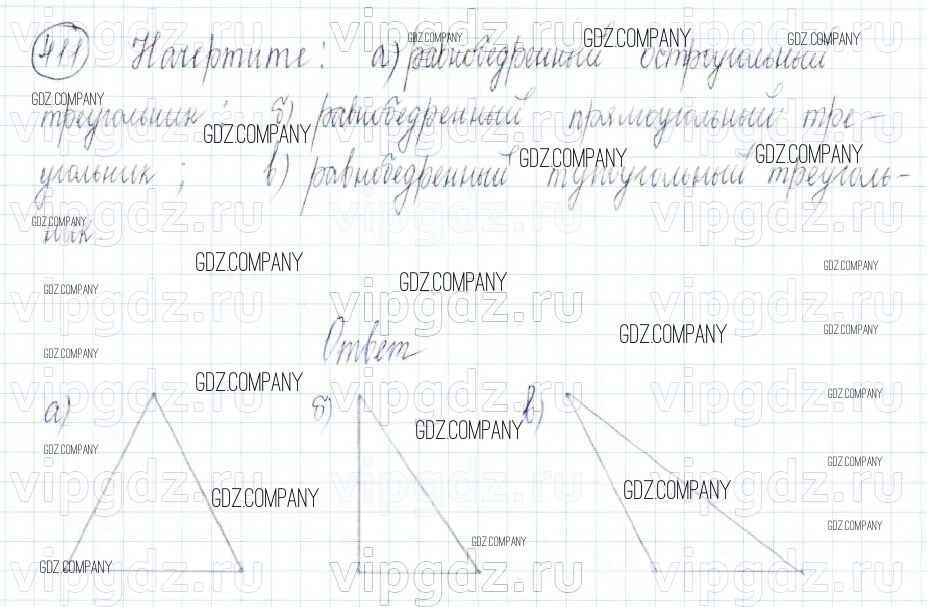 411 Начертите: а) равнобедренный остроугольный
треугольник; б) равнобедренный прямоугольный тре-
угольник; в) равнобедренный тупоугольный треуголь-
ник
Ответ
а) б) в)
GDZ.COMPANY
vipgdz.ru